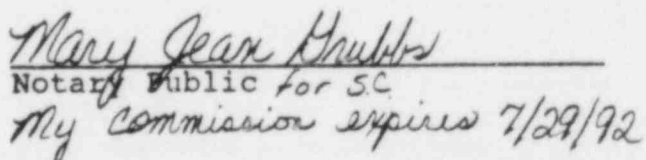 Mary Jean Grubbs
Notary Public for SC
My commission expires 7/29/92